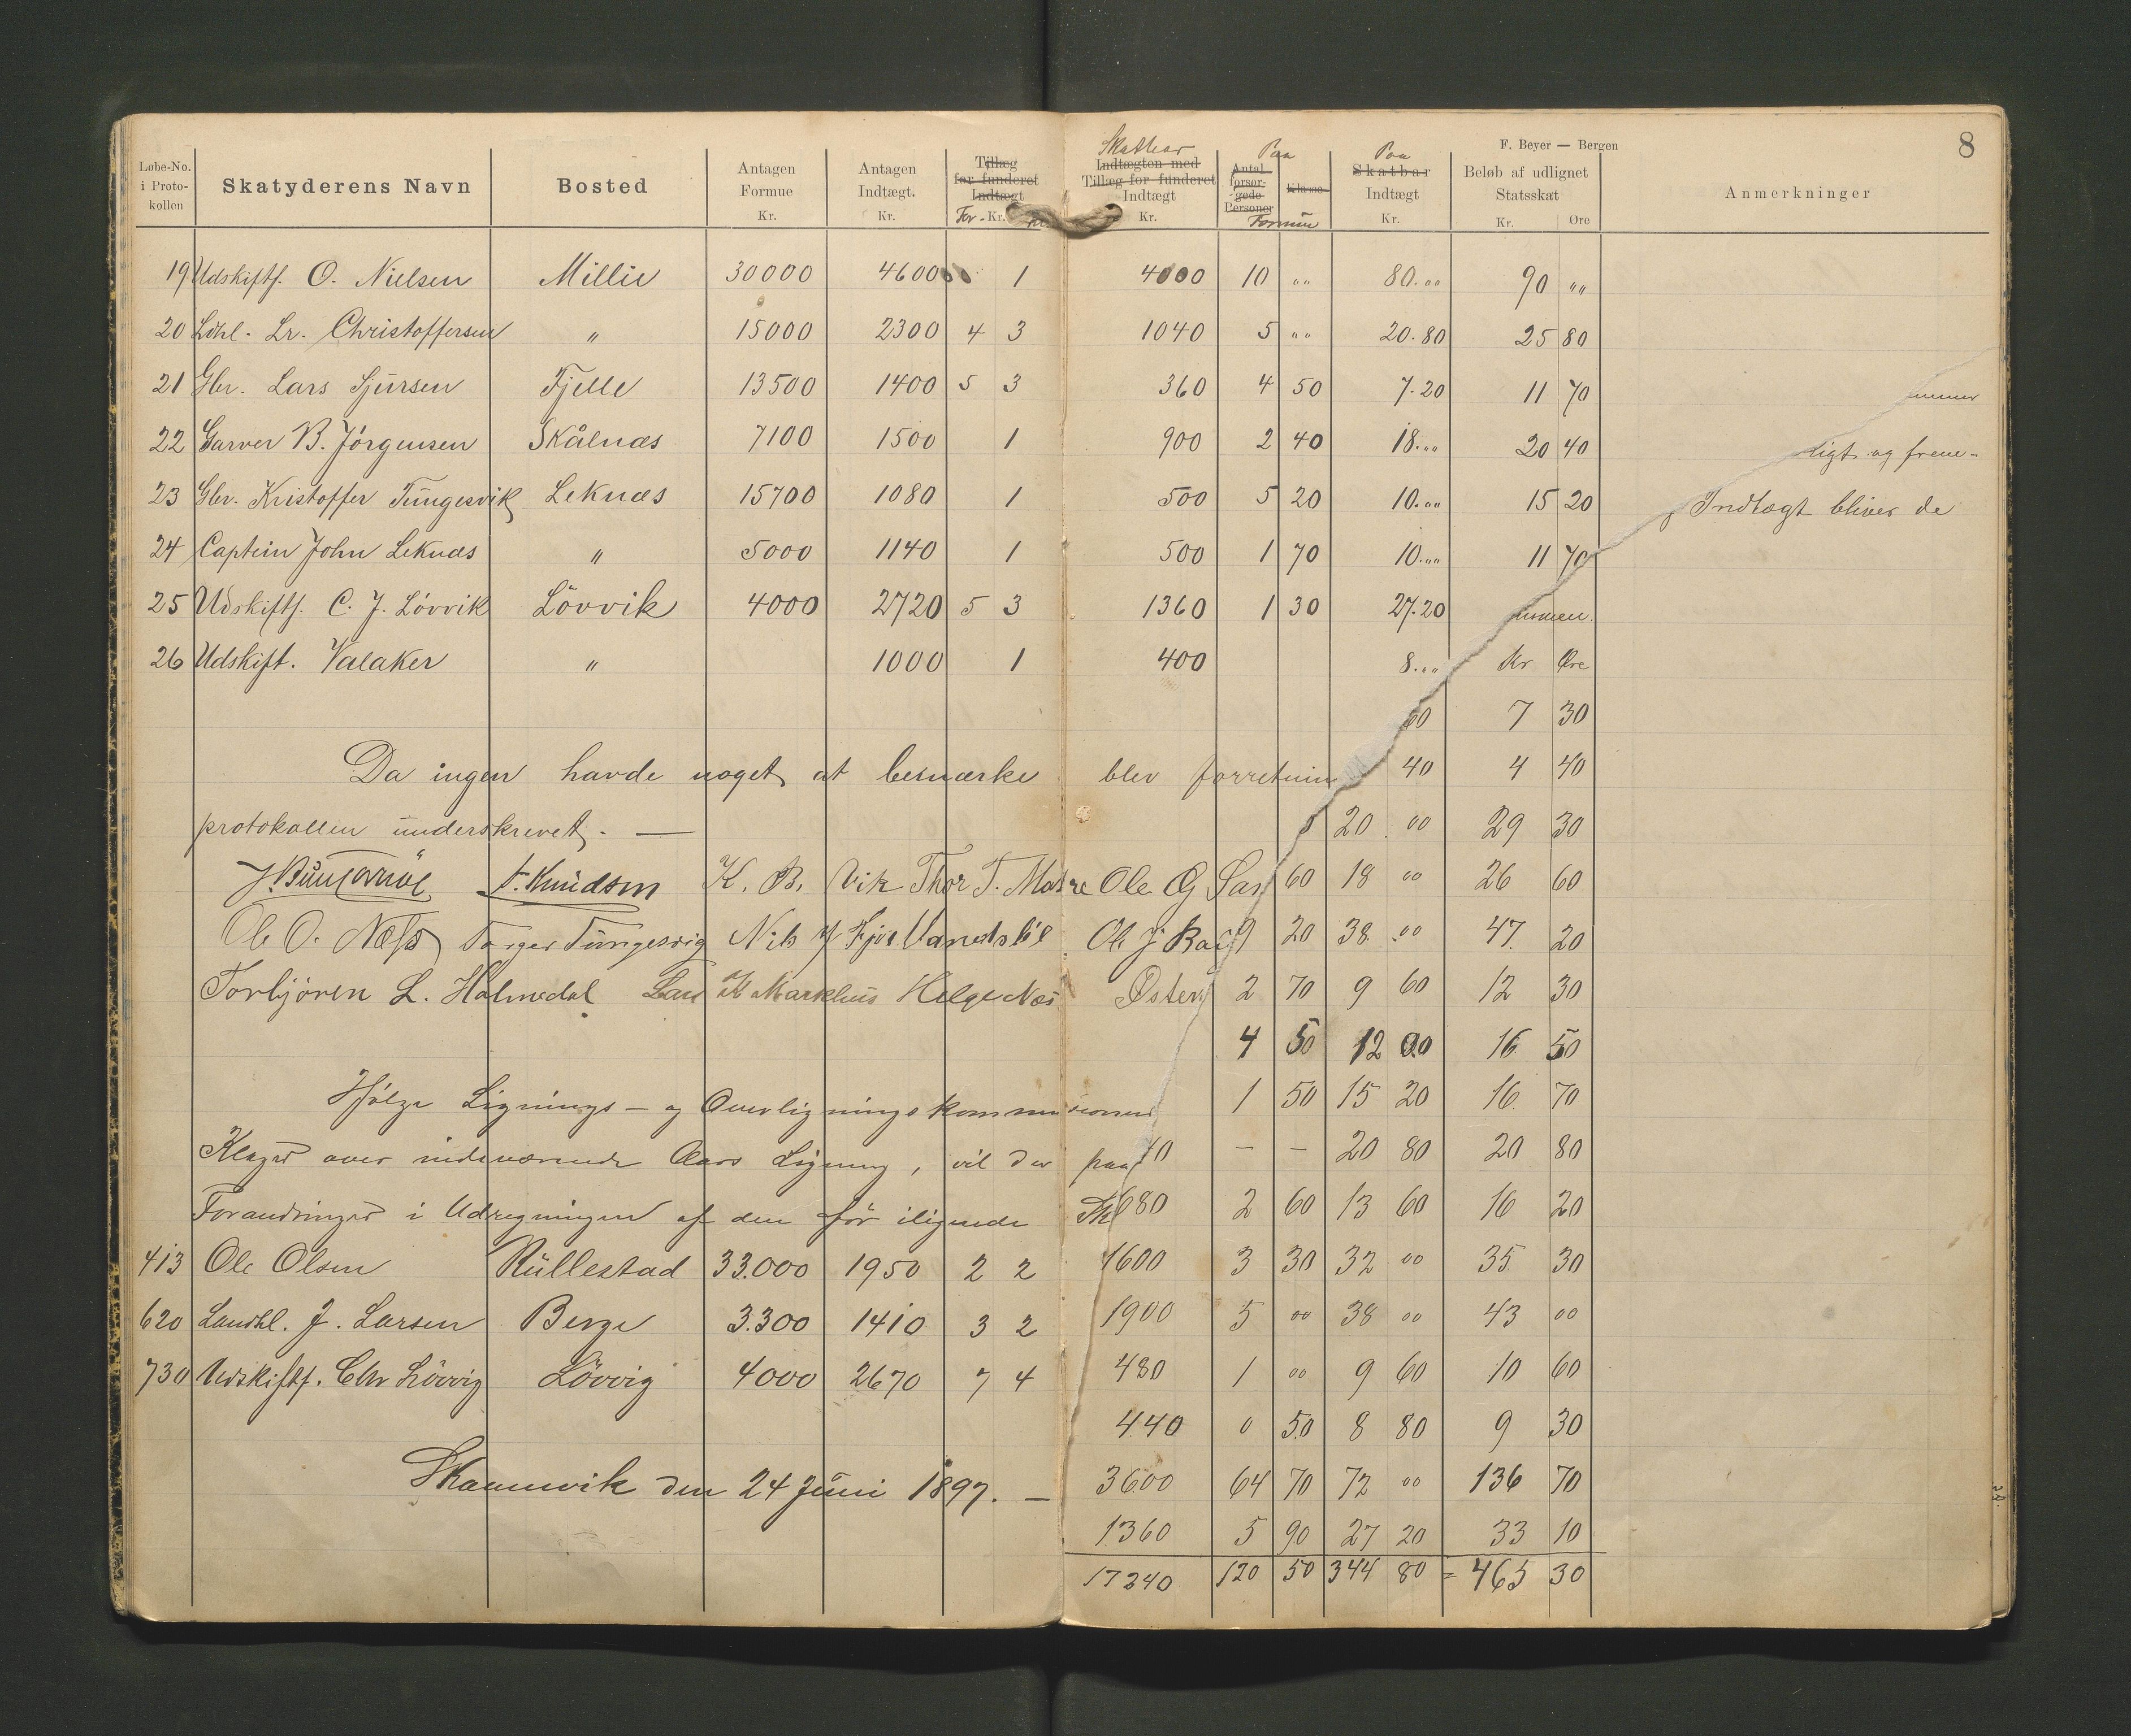 8
F. Beyer — Bergen
Løbe-No. i Proto-kollen | Skatyderens Navn | Bosted | Antagen Formue Kr. | Antagen Indtægt. Kr. | Tillæg for funderet Indtægt For- Kr. | Skatbar Indtægten med Tillæg for funderet Indtægt Kr. | Paa Antal forsør-gede Personer Klasse. Formue | Paa Skatbar Indtægt Kr. | Beløb af udlignet Statsskat Kr. Øre | Anmerkninger
19 Udskiftf. O. Nielsen Millie 30000 4600 1 4000 10 „ 80.00 90 „
20 Ldhl. Lr. Christoffersen „ 15000 2300 4 3 1040 5 „ 20.80 25 80
21 Gbr. Lars Sjursen Fjelle 13500 1400 5 3 360 4 50 7.20 11 70
22 Garver B. Jörgensen Skålnæs 7100 1500 1 900 2 40 18.00 20 40 ligt og frem-
23 Gbr. Kristoffer Tungesvik Leknæs 15700 1080 1 500 5 20 10.00 15 20 Indtægt bliver de
24 Captein John Leknæs „ 5000 1140 1 500 1 70 10.00 11 70
25 Udskiftf. C. J. Lövvik Lövvik 4000 2720 5 3 1360 1 30 27.20 ummen.
26 Udskift. Valaker „ 1000 1 400 8.00 Kr Øre
60 7 30
Da ingen havde noget at bemærke blev forretnin 40 4 40
protokollen underskrevet. — 20 00 29 30
A. Knudsen K. B. Vik Thor T. Matre Ole G 60 18 00 26 60
Ole O. Næss Torger Tungesvig Nils 9 20 38 00 47 20
Torbjören L. Holmedal Lars Markhus Helge Næs Østen 2 70 9 60 12 30
4 50 12 00 16 50
Ifølge Lignings- og Overligningskommissionens 1 50 15 20 16 70
Klager over indeværende Aars Ligning, vil der paa 40 — — 20 80 20 80
Forandringer i Udregningen af den før ilignede 680 2 60 13 60 16 20
413 Ole Olsen Rullestad 33.000 1950 2 2 1600 3 30 32 00 35 30
620 Landhl. J. Larsen Berge 3.300 1410 3 2 1900 5 00 38 00 43 00
730 Udskiftf. Chr Lövvig Lövvig 4000 2670 7 4 480 1 00 9 60 10 60
440 0 50 8 80 9 30
Skaanevik den 24 Juni 1897. — 3600 64 70 72 00 136 70
1360 5 90 27 20 33 10
17240 120 50 344 80 = 465 30